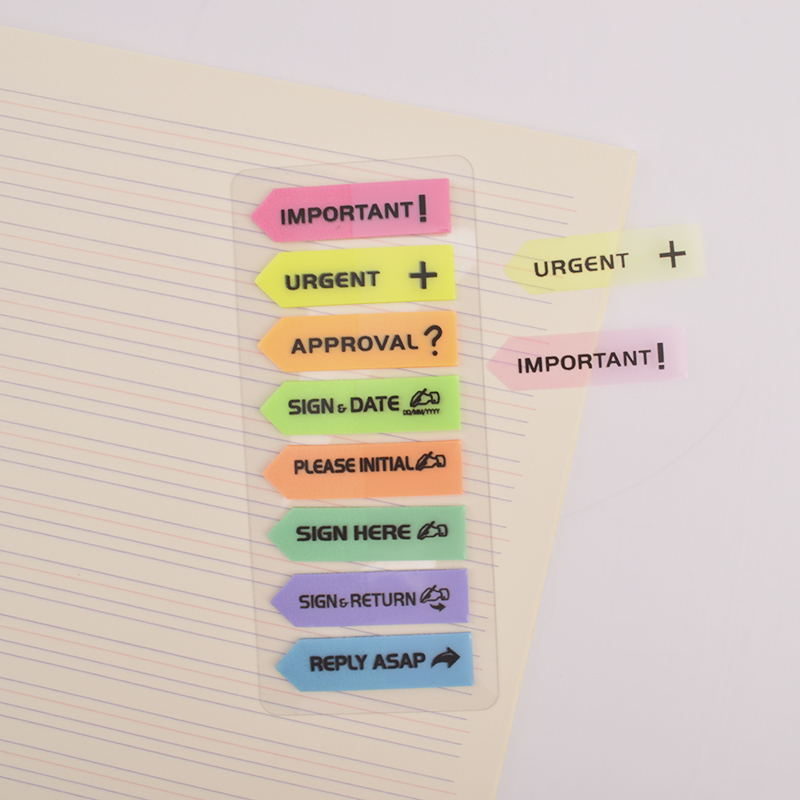 IMPORTANT!
URGENT +
APPROVAL?
SIGN & DATE
DD/MM/YYYY
PLEASE INITIAL
SIGN HERE
SIGN & RETURN
REPLY ASAP
URGENT +
IMPORTANT!